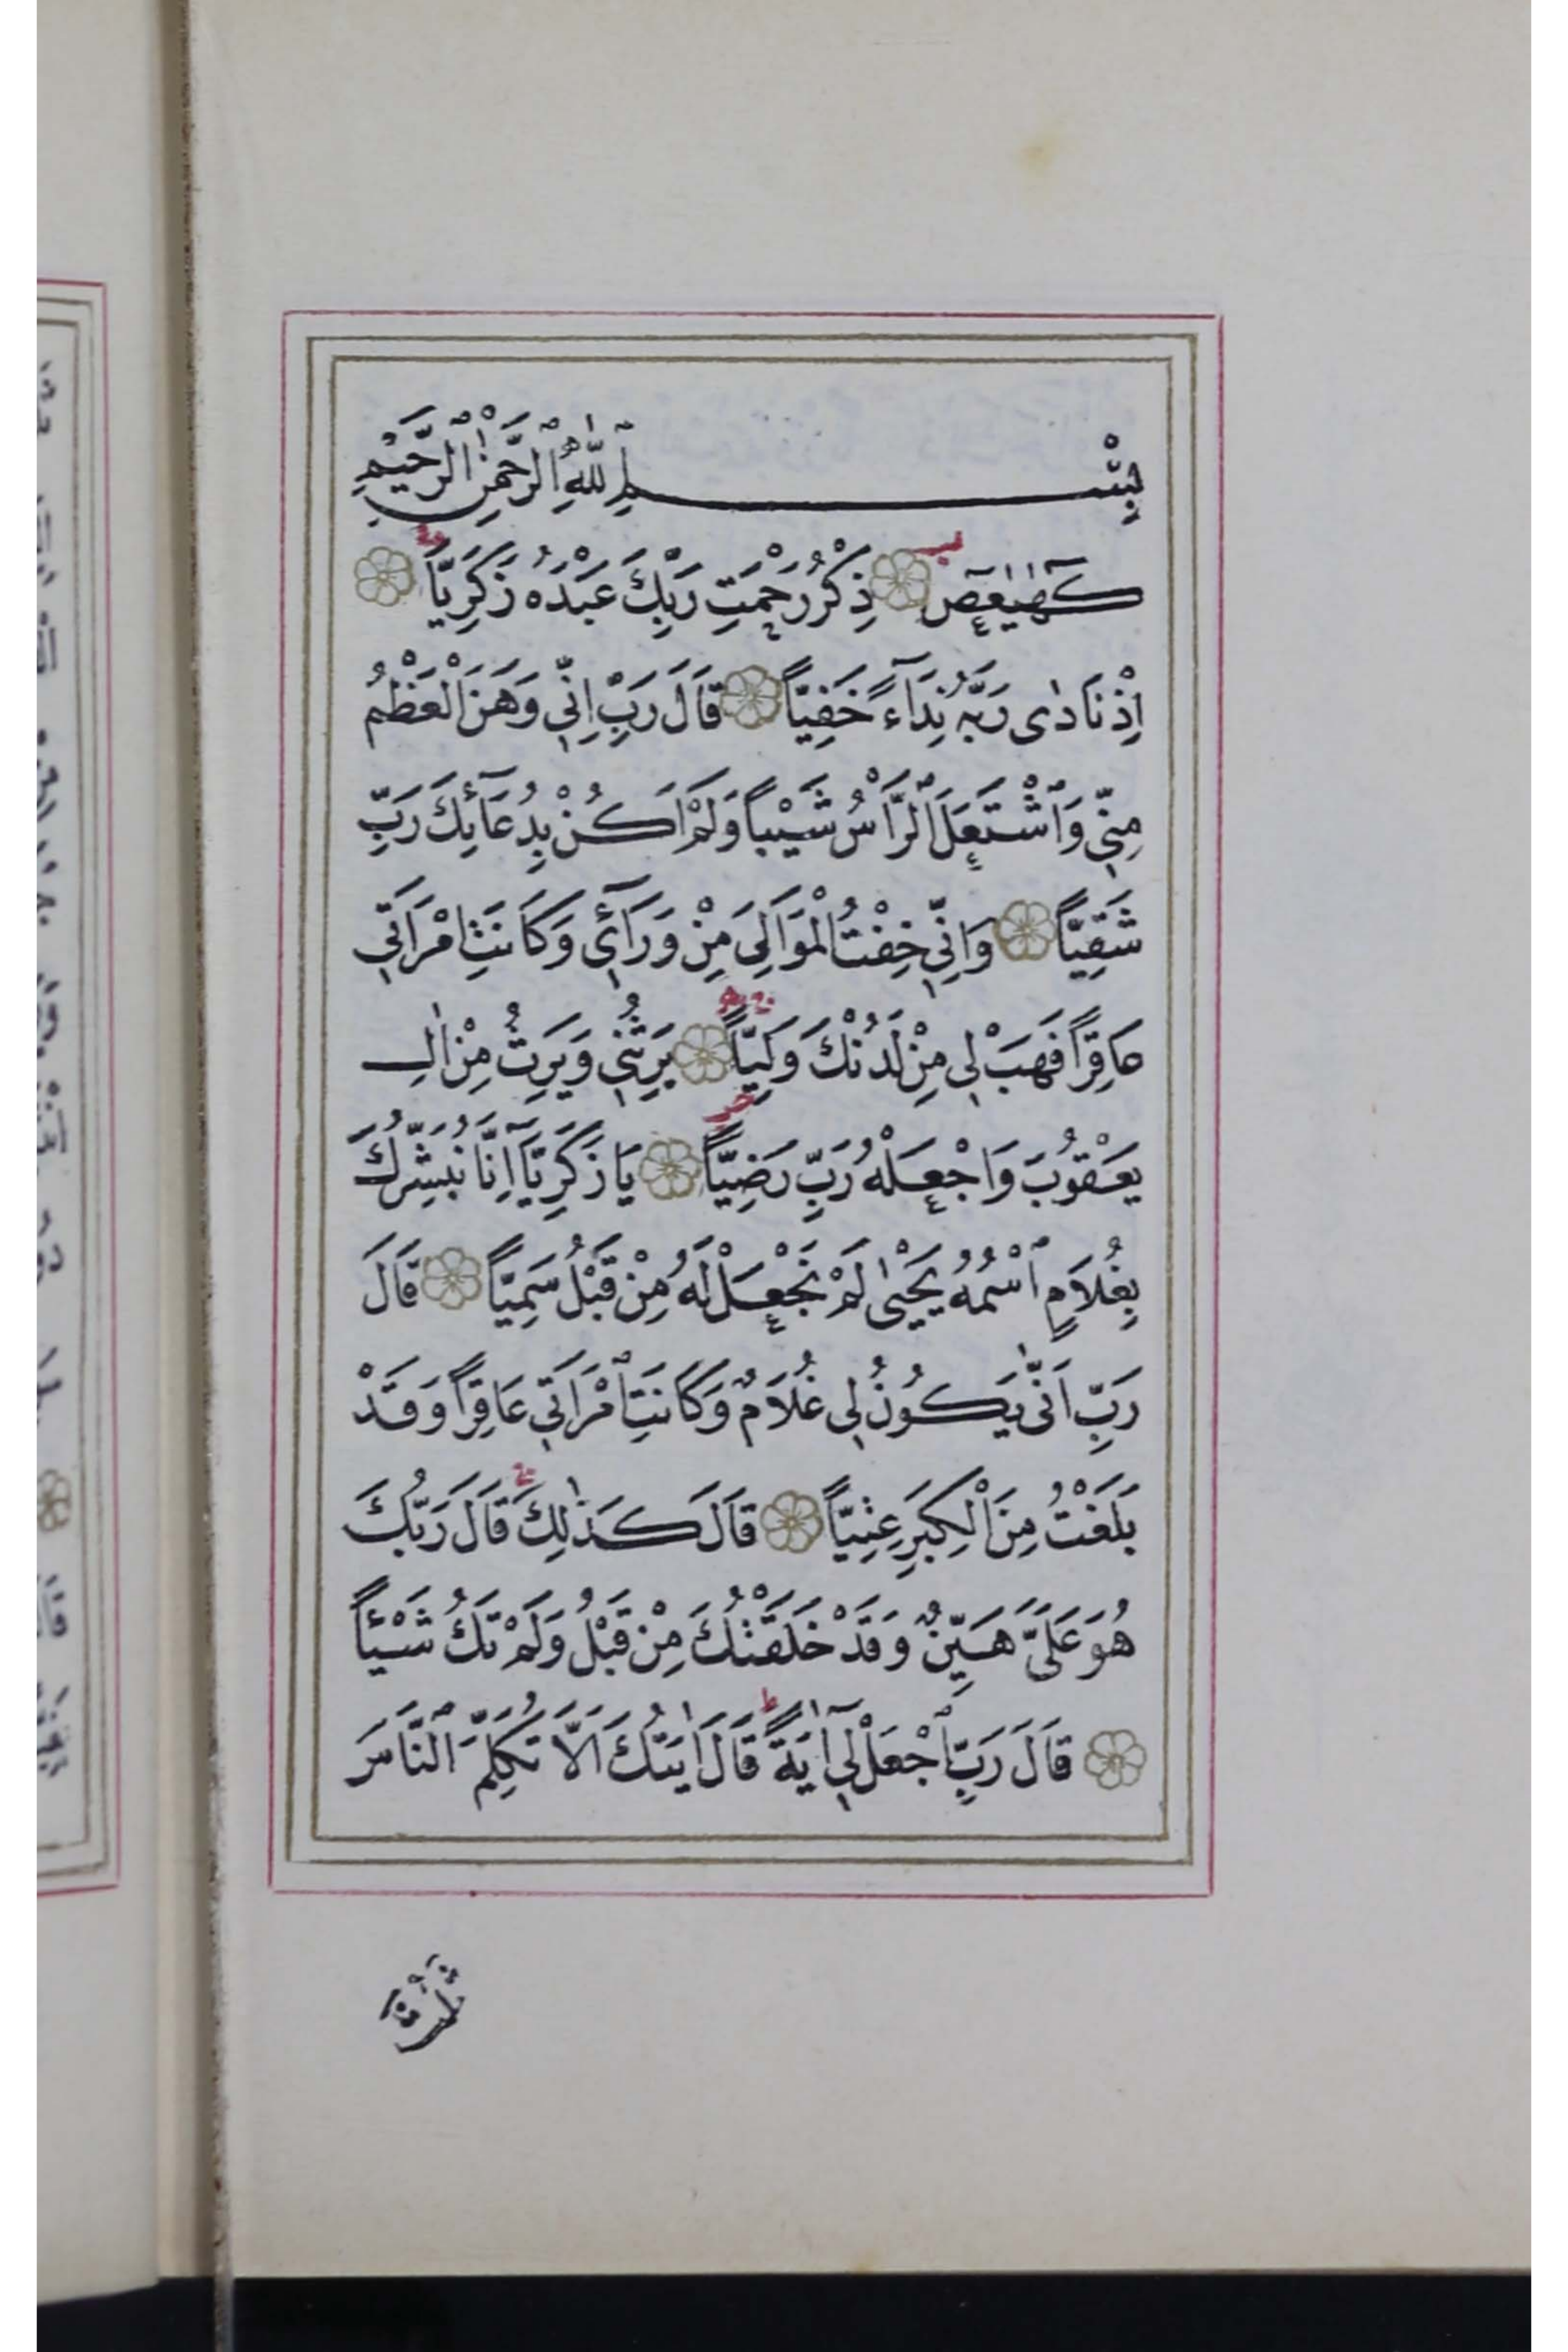 بِسْمِ ٱللّٰهِ ٱلرَّحْمٰنِ ٱلرَّحِيْمِ
كٓهٰيٰعٓصٓ ذِكْرُ رَحْمَتِ رَبِّكَ عَبْدَهُ زَكَرِيَّاً
اِذْ نَادٰى رَبَّهُ نِدَآءً خَفِيّاً قَالَ رَبِّ اِنّ۪ي وَهَنَ الْعَظْمُ
مِنّ۪ي وَٱشْتَعَلَ ٱلرَّاْسُ شَيْباً وَلَمْ اَكُنْ بِدُعَآئِكَ رَبِّ
شَقِيّاً وَاِنّ۪ي خِفْتُ الْمَوَالِيَ مِنْ وَرَآئ۪ي وَكَانَتِ امْرَاَت۪ي
عَاقِراً فَهَبْ ل۪ي مِنْ لَدُنْكَ وَلِيّاً يَرِثُن۪ي وَيَرِثُ مِنْ اٰلِ
يَعْقُوبَ وَاجْعَلْهُ رَبِّ رَضِيّاً يَا زَكَرِيَّآ اِنَّا نُبَشِّرُكَ
بِغُلَامٍ ٱسْمُهُ يَحْيٰى لَمْ نَجْعَلْ لَهُ مِنْ قَبْلُ سَمِيّاً قَالَ
رَبِّ اَنّٰى يَكُونُ ل۪ي غُلَامٌ وَكَانَتِ ٱمْرَاَت۪ي عَاقِراً وَقَدْ
بَلَغْتُ مِنَ الْكِبَرِ عِتِيّاً قَالَ كَذٰلِكَ قَالَ رَبُّكَ
هُوَ عَلَيَّ هَيِّنٌ وَقَدْ خَلَقْتُكَ مِنْ قَبْلُ وَلَمْ تَكُ شَيْئاً
قَالَ رَبِّ ٱجْعَلْ ل۪ٓي اٰيَةً قَالَ اٰيَتُكَ اَلَّا تُكَلِّمَ ٱلنَّاسَ
ثَلٰثَةَ